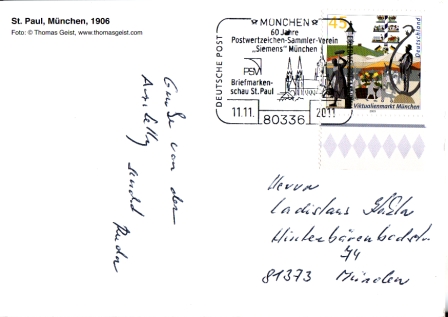 St. Paul, München, 1906
Foto: © Thomas Geist, www.thomasgeist.com
DEUTSCHE POST
MÜNCHEN
60 Jahre
Postwertzeichen-Sammler-Verein
„Siemens" München
PSM
Briefmarken-
schau St. Paul
11.11. 2011
80336
45
Deutschland
Viktualienmarkt München
Grüße von der
sendet
Herrn
Ladislaus
74
81373 München